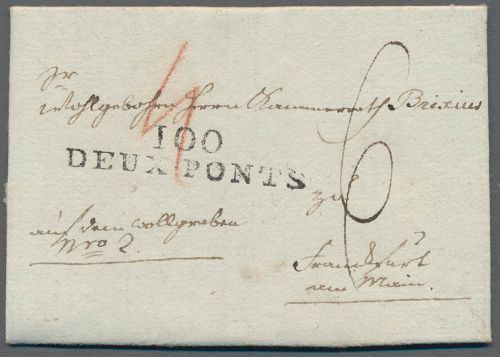 Sr
Wohlgebohren Herrn Kammerrath Brixius
4
100
DEUX PONTS
6
zu
auf dem wollgraben
Nro 2.
Franckfurt
am Main.